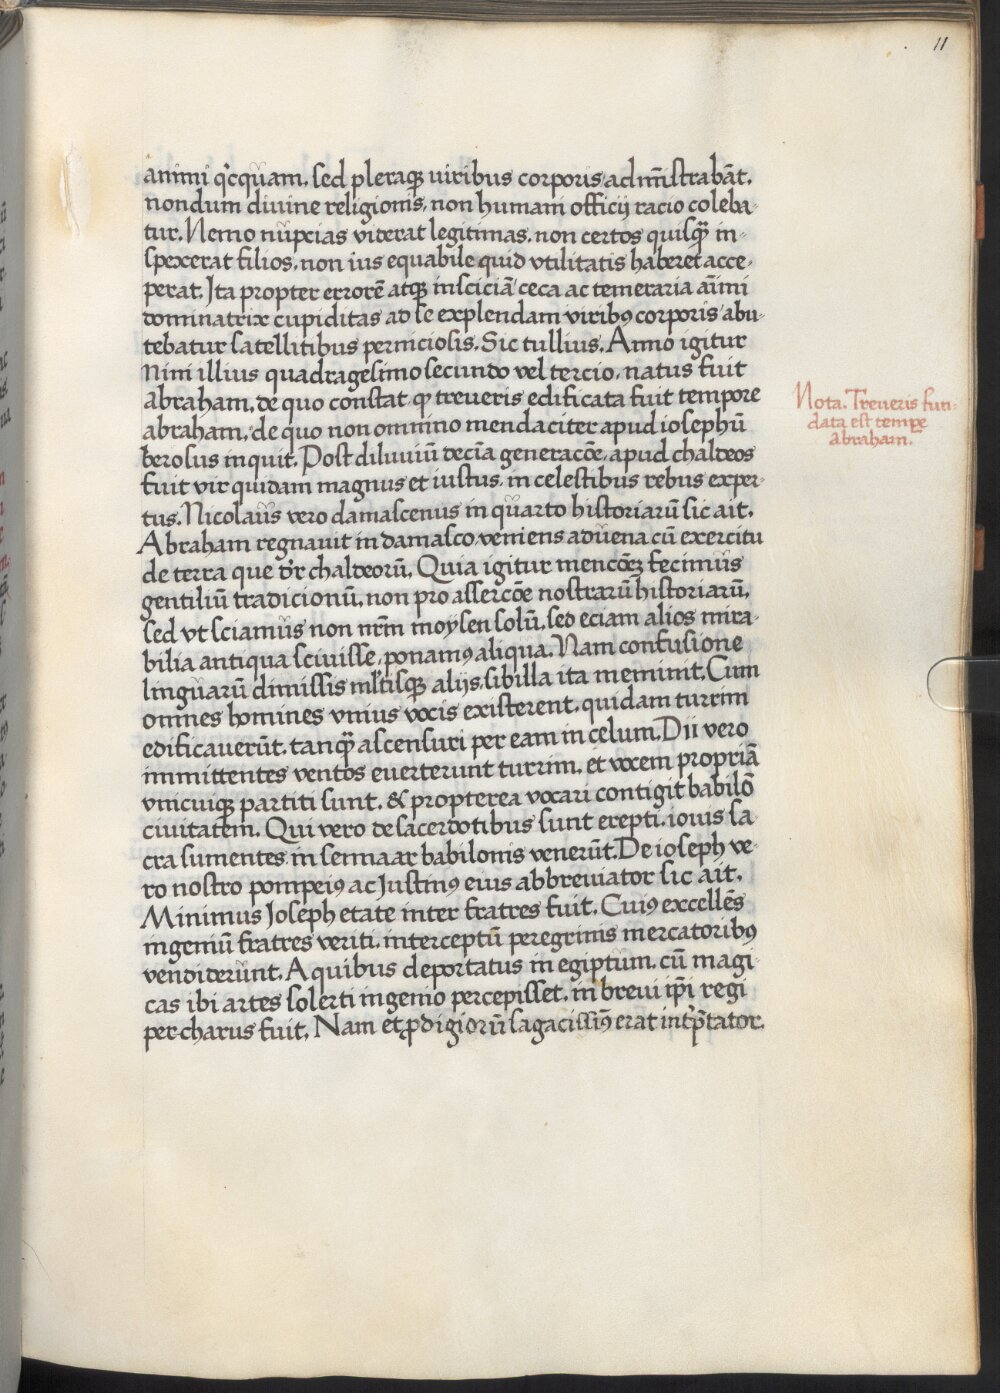 11
animi qͥcquam, sed pleraqꝫ uiribus corporis admı̅strabãt.
nondum diuine religionis, non humani officij racio coleba-
tur. Nemo nupcias viderat legitimas, non certos quisqꝫ̃ in-
spexcerat filios, non ius equabile quid vtilitatis haberet acce-
perat. Ita propter errorē atqꝫ insciciã ceca ac temeraria aı̅mi
dominatrix cupiditas ad se explendam viribꝰ corporis abu-
tebatur satellitibus perniciosis. Sic tullius. Anno igitur
Nini illius quadragesimo secundo vel tercio, natus fuit
abraham, de quo constat ꝙ treueris edificata fuit tempore
abraham, de quo non omnino mendaciter apud iosephū
berosus inquit. Post diluuiū decı̅a generacōe, apud chaldeos
fuit vir quidam magnus et iustus, in celestibus rebus exper-
tus. Nicolaus vero damascenus in quarto historiarū sic ait.
Abraham regnauit in damasco, veniens aduena cū exercitu
de terra que dr̄ chaldeorū. Quia igitur mencōeꝫ fecimus
gentiliū tradicionū, non pro assercōe nostrarū historiarū,
sed vt sciamus non nr̄m moysen solū, sed eciam alios mira-
bilia antiqua sciuisse, ponamꝰ aliqua. Nam confusione
linguarū dimissis ml̄tisqꝫ alijs, sibilla ita meminit. Cum
omnes homines vnius vocis existerent, quidam turrim
edificauerūt, tanqꝫ̃ ascensuri per eam in celum. Dii vero
immittentes ventos euerterunt turrim, et vocem propriã
vnicuiqꝫ partiti sunt. & propterea vocari contigit babilō
ciuitatem. Qui vero de sacerdotibus sunt erepti, iouis sa
cra sumentes in sennaar babilonis venerūt. De ioseph ve-
ro nostro pompeiꝰ ac Justinꝰ eius abbreuiator sic ait.
Minimus Joseph etate inter fratres fuit. Cuiꝰ excellēs
ingeniū fratres veriti, interceptū peregrinis mercatoribꝰ
vendiderunt. A quibus deportatus in egiptum, cū magi-
cas ibi artes solerti ingenio percepisset, in breui ip̄i regi
percharus fuit. Nam et ꝓdigiorū sagacissiꝰ erat int̓p̄tator.
Nota. Treueris fun-
data est tempe
abraham.